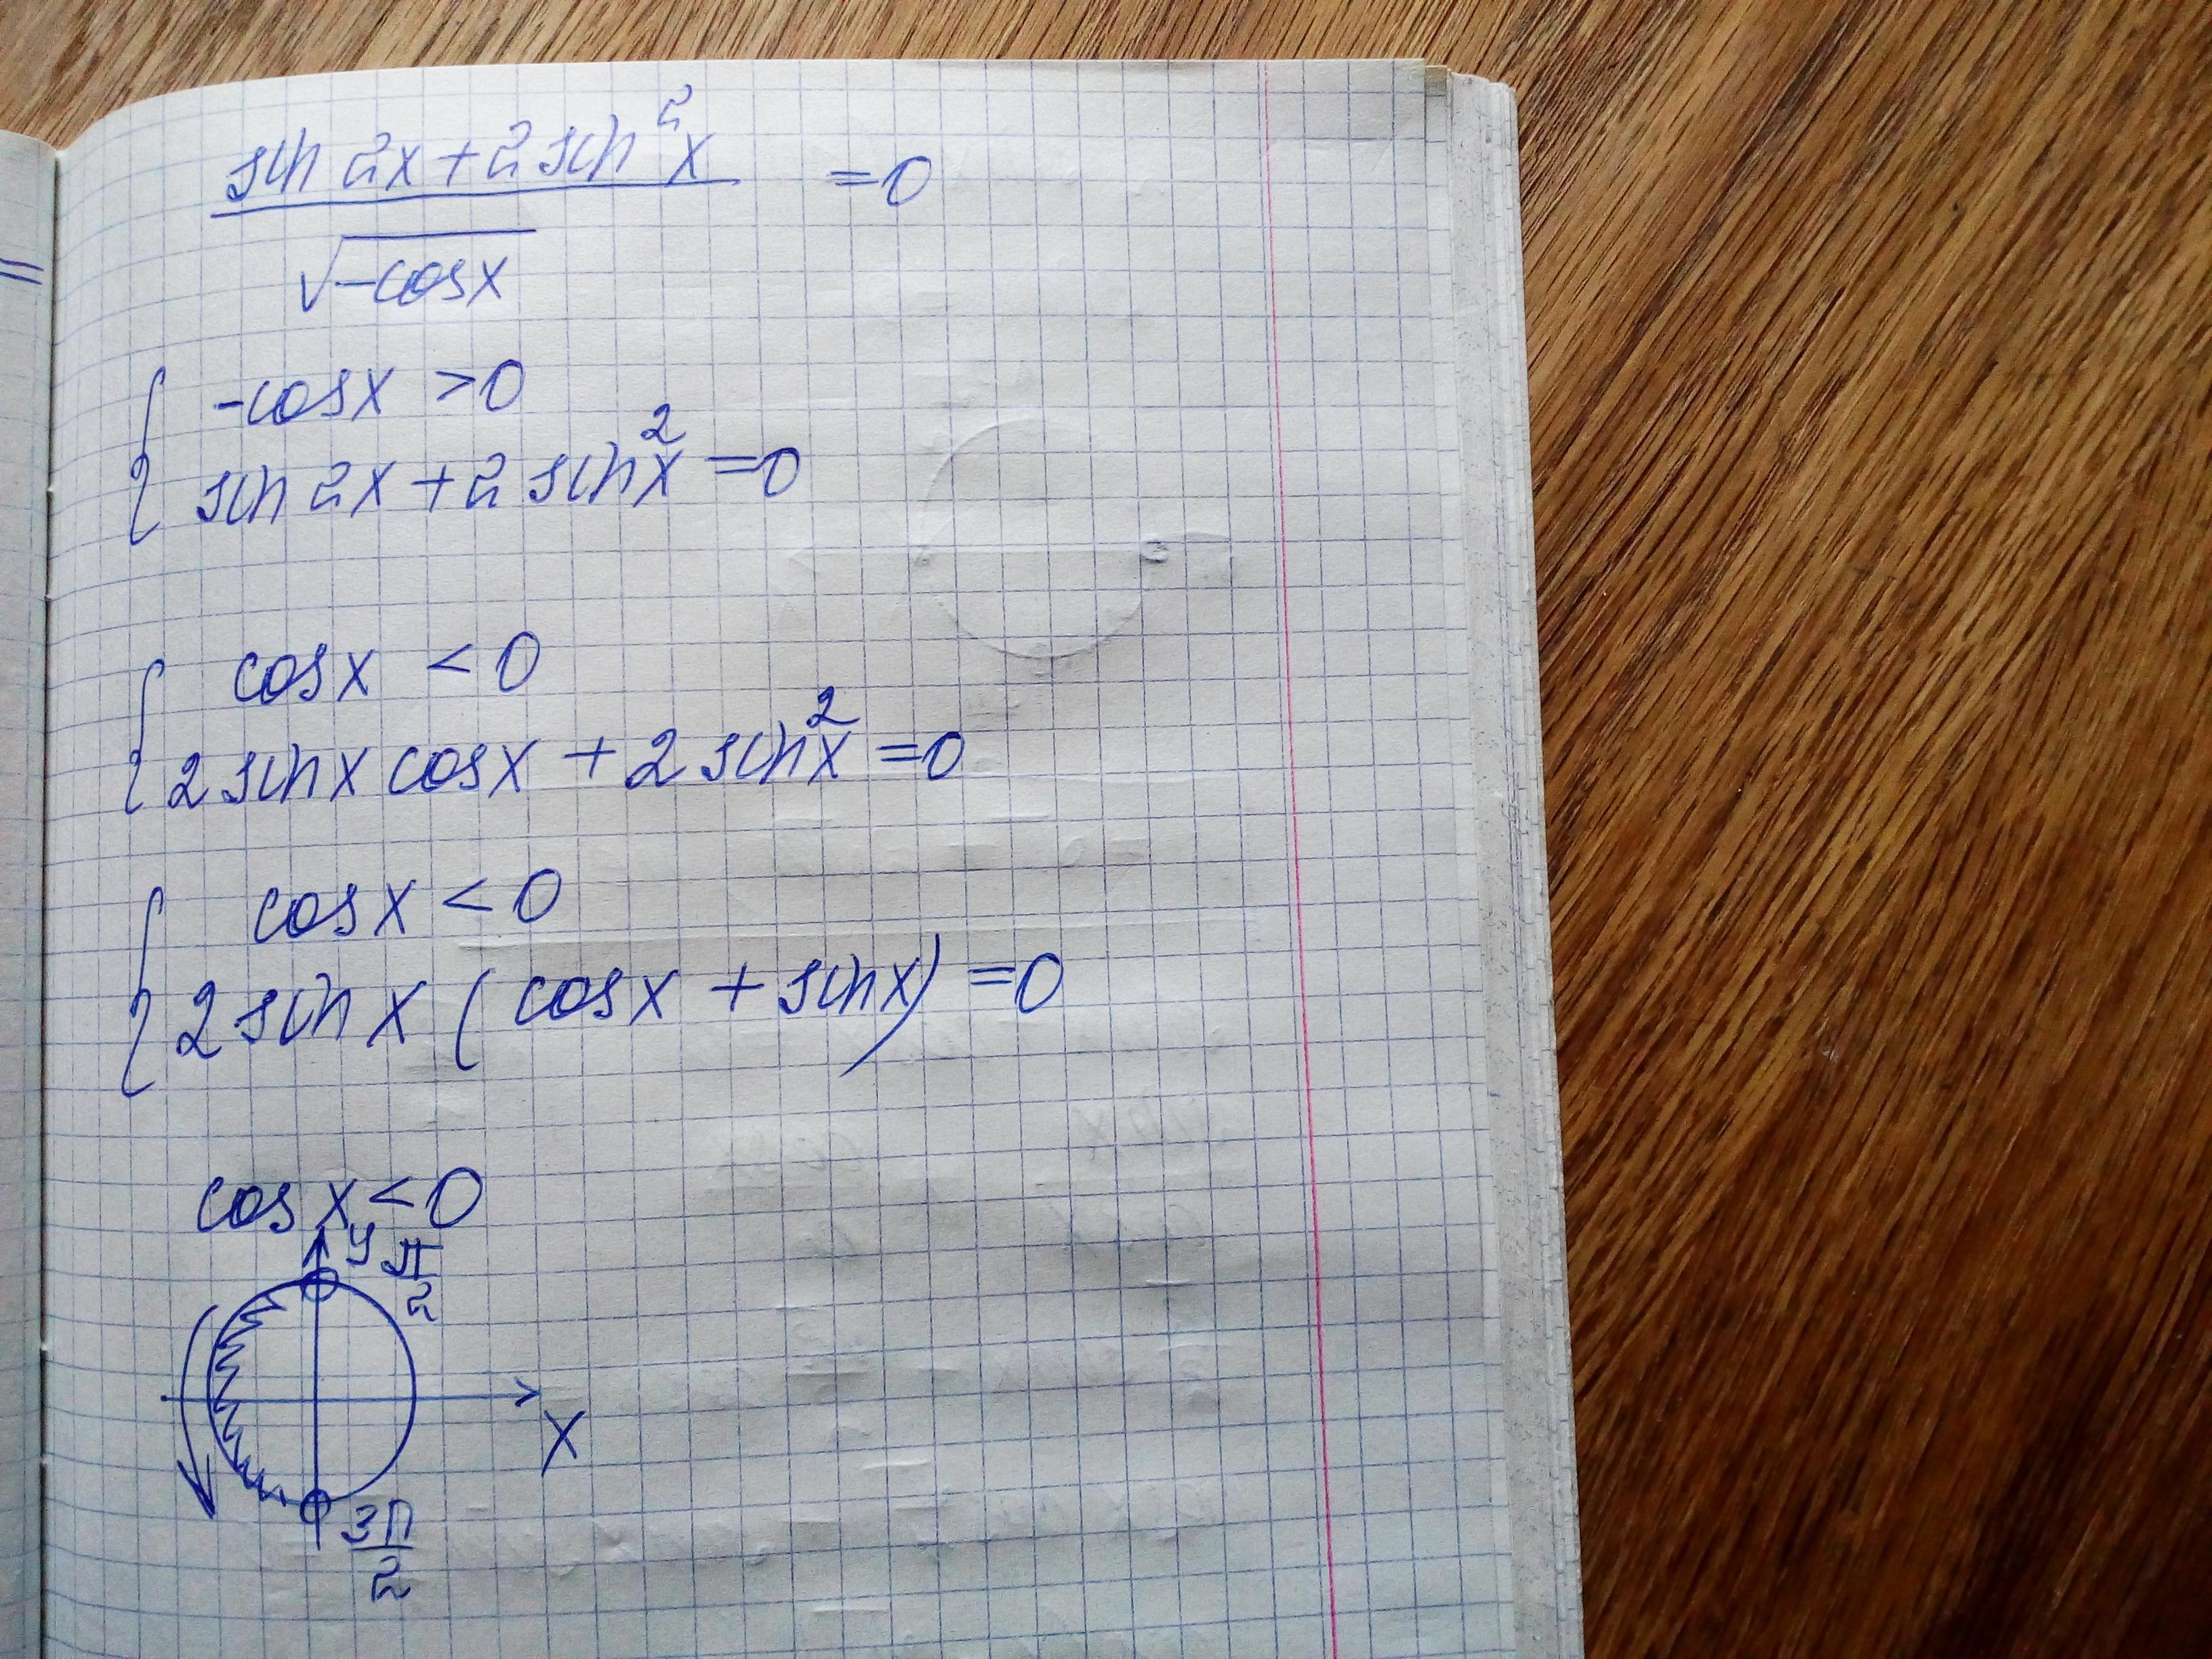 sin 2x + 2 sin²x / √-cosx = 0
{ -cosx > 0
sin 2x + 2 sin²x = 0
{ cosx < 0
2 sinx cosx + 2 sin²x = 0
{ cosx < 0
2 sinx (cosx + sinx) = 0
cosx < 0
y π/2
x
3π/2